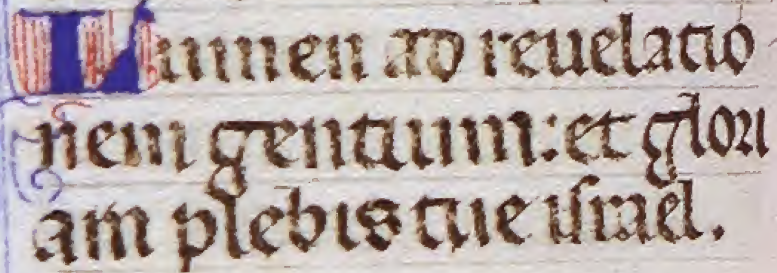 Lumen ad reuelatio
nem gentium: et glori
am plebis tue israel.